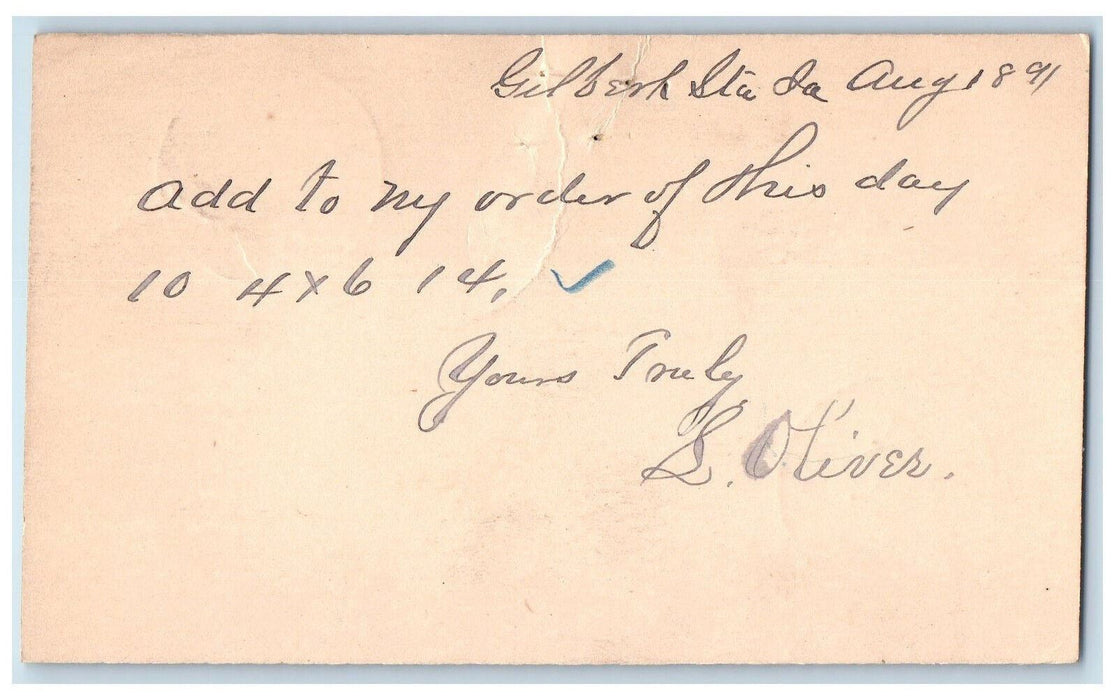 Gilbert Sta Ia Aug 18 91
Add to my order of this day
10 4x6 14.
Yours Truly
S. Oliver.